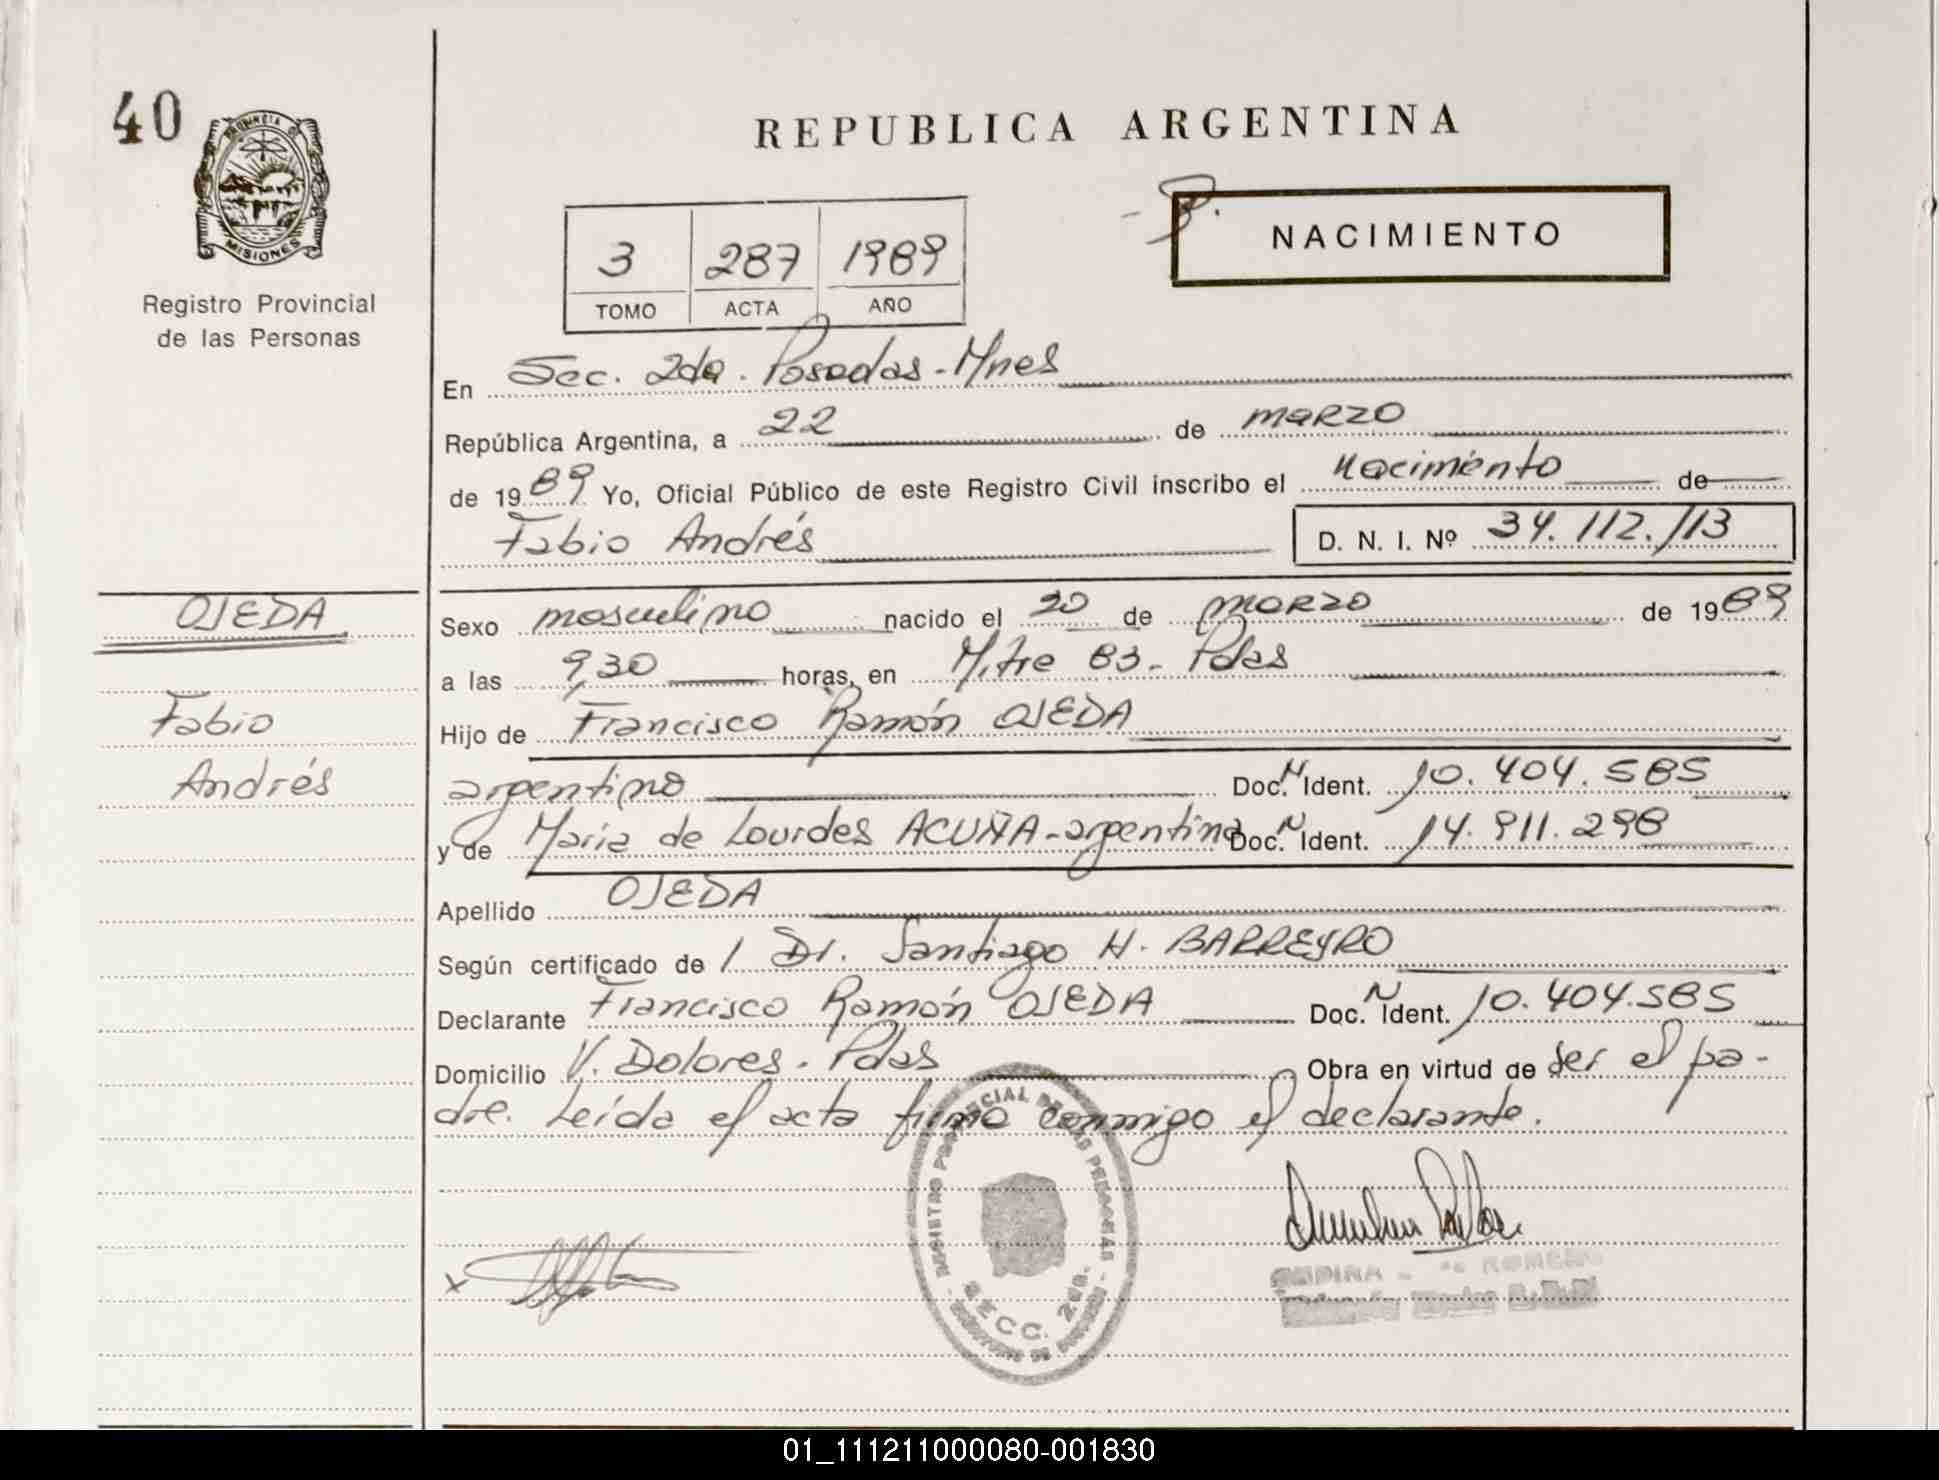 40
PROVINCIA DE
MISIONES
Registro Provincial
de las Personas
REPUBLICA ARGENTINA
NACIMIENTO
3 287 1989
TOMO ACTA AÑO
En Sec. 2da. Posadas-Mnes
República Argentina, a 22 de marzo
de 1989 Yo, Oficial Público de este Registro Civil inscribo el Nacimiento de
Fabio Andrés D. N. I. Nº 34.112.113
OJEDA
Fabio
Andrés
Sexo masculino nacido el 20 de marzo de 1989
a las 9,30 horas, en Mitre 83- Pdas
Hijo de Francisco Ramón OJEDA
argentino Doc. N Ident. 10.404.585
y de María de Lourdes ACUÑA-argentina Doc. N Ident. 14.911.298
Apellido OJEDA
Según certificado de / Dr. Santiago H. BARREYRO
Declarante Francisco Ramón OJEDA Doc. N Ident. 10.404.585
Domicilio V. Dolores. Pdas Obra en virtud de ser el pa-
dre. Leída el acta firma conmigo el declarante.
REGISTRO PROVINCIAL DE LAS PERSONAS
SECC. 2da.
01_111211000080-001830